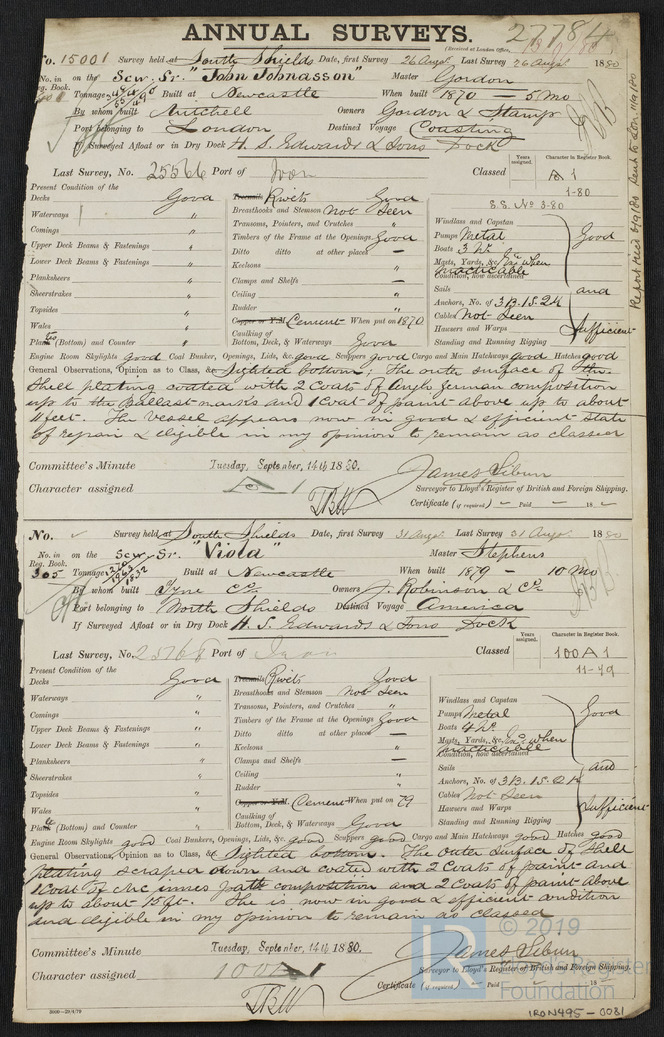 ANNUAL SURVEYS. 27784
(Received at London Office,
No. 15001 Survey held at South Shields Date, first Survey 26 Augt Last Survey 26 Augt 1880
No. in Reg. Book. on the Scw. Sr. "John Johnasson" Master Gordon
Tonnage Built at Newcastle When built 1870 – 5 Mo
By whom built Mitchell Owners Gordon & Stamp
Port belonging to London Destined Voyage Coasting
If Surveyed Afloat or in Dry Dock H. S. Edwards & Sons Dock
Last Survey, No. 25566 Port of Iron Classed Years assigned. Character in Register Book. A 1
1-80
S.S. No 3-80
Report recd 6/9/80 Sent to Lon 11/9/80
Present Condition of the
Decks Good Treenails Rivets Good
Waterways " Breasthooks and Stemson Not Seen Windlass and Captan
Comings " Transoms, Pointers, and Crutches " Pumps Metal Good
Upper Deck Beams & Fastenings " Timbers of the Frame at the Openings Good Boats 3 No.
Lower Deck Beams & Fastenings " Ditto ditto at other places — Masts, Yards, &c. when practicable
Condition, how ascertained
Planksheers " Keelsons "
Sheerstrakes " Clamps and Shelfs — Sails and
Topsides " Ceiling " Anchors, No. of 3B.1S.2K
Wales " Rudder " Cables Not Seen
Copper or Y.M. Cement When put on 1870 Hawsers and Warps Sufficient
Plank (Bottom) and Counter " Caulking of Bottom, Deck, & Waterways Good Standing and Running Rigging
Engine Room Skylights good Coal Bunker, Openings, Lids, &c. good Scuppers good Cargo and Main Hatchways good Hatches good
General Observations, Opinion as to Class, &c. Sighted bottom; The outer surface of the
Shell plating coated with 2 Coats of Anglo German composition
up to the Ballast marks and 1 Coat of paint above up to about
11 feet. The vessel appears now in good & efficient state
of repair & eligible in my opinion to remain as classed
Committee's Minute Tuesday, September, 14th 1880. James Sibun
Character assigned 1 Surveyor to Lloyd's Register of British and Foreign Shipping.
Certificate (if required) – Paid – 18 –
No. Survey held at South Shields Date, first Survey 31 Augt. Last Survey 31 Augt. 1880
No. in Reg. Book. on the Scw. Sr. "Viola" Master Stephens
305 Tonnage Built at Newcastle When built 1879 – 10 Mo
By whom built Tyne Co. Owners J. Robinson & Co.
Port belonging to North Shields Destined Voyage America
If Surveyed Afloat or in Dry Dock H. S. Edwards & Sons Dock
Last Survey, No. 25768 Port of Iron Classed Years assigned. Character in Register Book. 100 A 1
11-79
Present Condition of the
Decks Good Treenails Rivets Good
Waterways " Breasthooks and Stemson Not Seen Windlass and Captan
Comings " Transoms, Pointers, and Crutches " Pumps Metal Good
Upper Deck Beams & Fastenings " Timbers of the Frame at the Openings Good Boats 4 No.
Lower Deck Beams & Fastenings " Ditto ditto at other places — Masts, Yards, &c. when practicable
Condition, how ascertained
Planksheers " Keelsons "
Sheerstrakes " Clamps and Shelfs — Sails and
Topsides " Ceiling " Anchors, No. of 3B.1S.2K
Wales " Rudder " Cables Not Seen
Copper or Y.M. Cement When put on 79 Hawsers and Warps Sufficient
Plank (Bottom) and Counter " Caulking of Bottom, Deck, & Waterways Good Standing and Running Rigging
Engine Room Skylights good Coal Bunker, Openings, Lids, &c. good Scuppers good Cargo and Main Hatchways good Hatches good
General Observations, Opinion as to Class, &c. Sighted bottom. The outer surface of Shell
plating scraped down and coated with 2 Coats of paint and
1 Coat of Mc Innes path composition and 2 Coats of paint above
up to about 15 ft. She is now in good & efficient condition
and eligible in my opinion to remain as classed
Committee's Minute Tuesday, September, 14th 1880. James Sibun
Character assigned 100 A 1 Surveyor to Lloyd's Register of British and Foreign Shipping.
Certificate (if required) – Paid – 18
© 2019
Lloyd's Register
Foundation
IRON495-0081